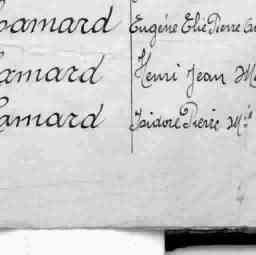 Camard Eugène Elie Pierre
Camard Henri Jean
Camard Isidore Pierre M.ie